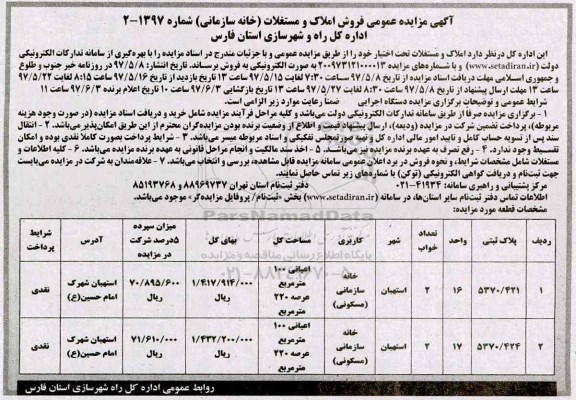 آگهی مزایده عمومی فروش املاک و مستغلات (خانه سازمانی) شماره ۱۳۹۷-۲
اداره کل راه و شهرسازی استان فارس
این اداره کل در نظر دارد املاک و مستغلات تحت اختیار خود را از طریق مزایده عمومی و با جزئیات مندرج در اسناد مزایده را با بهره‌گیری از سامانه تدارکات الکترونیکی
دولت (www.setadiran.ir) و با شماره‌های مزایده ۲۰۰۹۷۳۱۲۱۰۰۰۰۱۳ به صورت الکترونیکی به فروش برساند. تاریخ انتشار: ۹۷/۵/۸ در روزنامه خبر جنوب و طلوع
و جمهوری اسلامی مهلت دریافت اسناد مزایده از تاریخ ۹۷/۵/۸ ساعت ۷:۳۰ لغایت ۹۷/۵/۱۵ ساعت ۱۳ تاریخ بازدید از تاریخ ۹۷/۵/۱۶ ساعت ۸:۱۵ لغایت ۹۷/۵/۲۲
ساعت ۱۳ مهلت ارسال پیشنهاد از تاریخ ۹۷/۵/۸ ساعت ۸:۳۰ لغایت ۹۷/۵/۲۷ ساعت ۱۳ تاریخ بازگشایی ۹۷/۶/۳ ساعت ۱۰ تاریخ اعلام برنده ۹۷/۶/۳ ساعت ۱۱
شرایط عمومی و توضیحات برگزاری مزایده دستگاه اجرایی ضمنا رعایت موارد زیر الزامی است.
۱- برگزاری مزایده صرفا از طریق سامانه تدارکات الکترونیکی دولت می‌باشد و کلیه مراحل فرآیند مزایده شامل خرید و دریافت اسناد مزایده (در صورت وجود هزینه
مربوطه)، پرداخت تضمین شرکت در مزایده (ودیعه)، ارسال پیشنهاد قیمت و اطلاع از وضعیت برنده بودن مزایده‌گران محترم از این طریق امکان‌پذیر می‌باشد. ۲- انتقال
سند پس از تسویه حساب کامل و تایید امور مالی اداره کل و تهیه صورتمجلس تفکیکی و اسناد مربوطه میسر می‌باشد. ۳- شرایط پرداخت بصورت کاملا نقدی بوده و امکان
تقسیط وجود ندارد. ۴- رفع تصرف به عهده برنده مزایده می‌باشد. ۵- اخذ سند مالکیت و انجام مراحل قانونی به عهده برنده مزایده می‌باشد. ۶- کلیه اطلاعات و
مستغلات شامل مشخصات شرایط، و نحوه فروش در برد اعلان عمومی سامانه مزایده قابل مشاهده، بررسی و انتخاب می‌باشد. ۷- علاقمندان به شرکت در مزایده می‌بایست
جهت ثبت‌نام و دریافت گواهی الکترونیکی (توکن) با شماره‌های زیر تماس حاصل نمایند.
مرکز پشتیبانی و راهبری سامانه: ۴۱۹۳۴-۰۲۱ دفتر ثبت‌نام استان تهران ۸۸۹۶۹۷۳۷ و ۸۵۱۹۳۷۶۸
اطلاعات تماس دفتر ثبت‌نام سایر استان‌ها، در سامانه (www.setadiran.ir) بخش «ثبت‌نام/ پروفایل مزایده‌گر» موجود می‌باشد.
مشخصات قطعه مورد مزایده:
ردیف پلاک ثبتی واحد تعداد خواب شهر کاربری مساحت کل بهای کل میزان سپرده ۵درصد شرکت در مزایده آدرس شرایط پرداخت
۱ ۵۳۷۰/۴۲۱ ۱۶ ۲ استهبان خانه سازمانی (مسکونی) اعیانی ۱۰۰ مترمربع عرصه ۲۲۰ مترمربع ۱/۴۱۷/۹۱۴/۰۰۰ ریال ۷۰/۸۹۵/۶۰۰ ریال استهبان شهرک امام حسین(ع) نقدی
۲ ۵۳۷۰/۴۲۴ ۱۷ ۲ استهبان خانه سازمانی (مسکونی) اعیانی ۱۰۰ مترمربع عرصه ۲۲۰ مترمربع ۱/۴۳۲/۲۰۰/۰۰۰ ریال ۷۱/۶۱۰/۰۰۰ ریال استهبان شهرک امام حسین(ع) نقدی
روابط عمومی اداره کل راه شهرسازی استان فارس
ParsNamadData